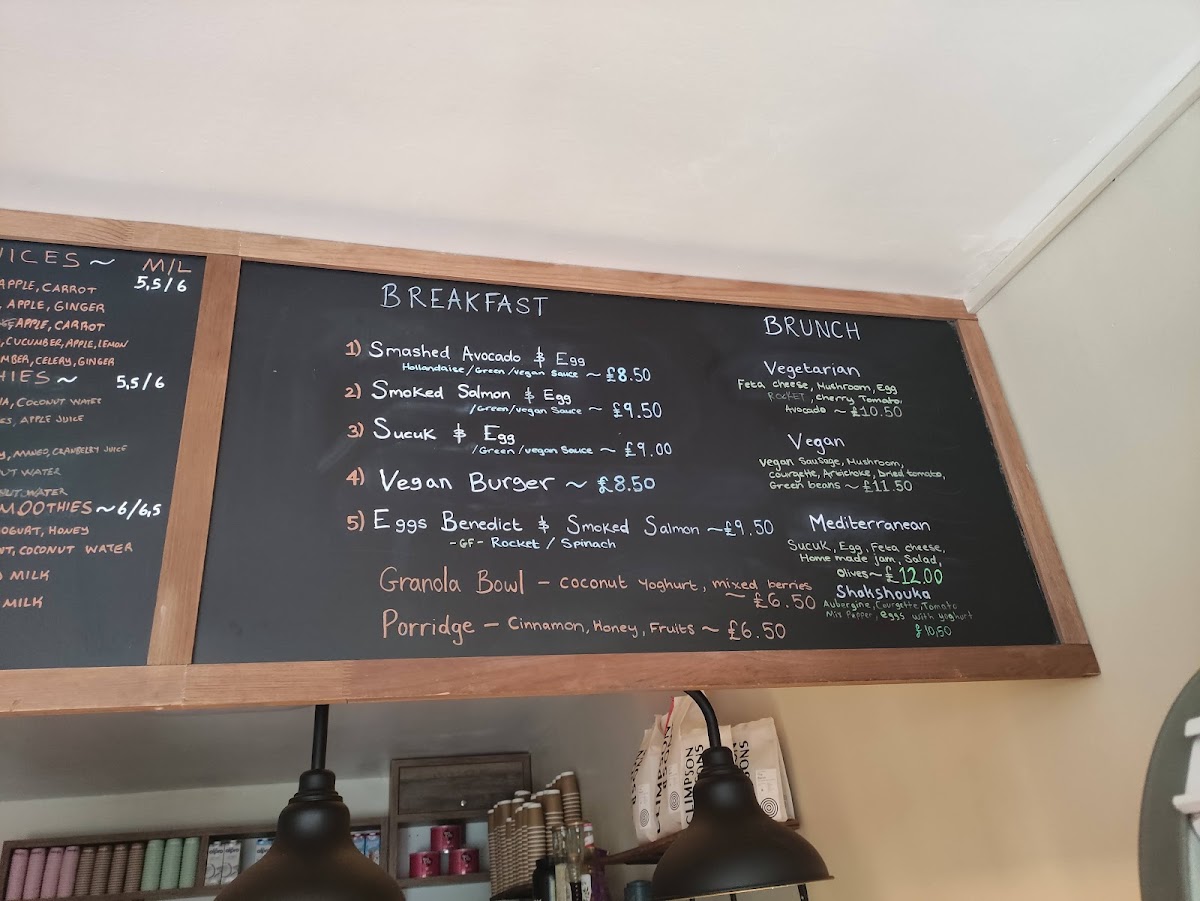 ICES ~ M/L
APPLE, CARROT 5,5/6
, APPLE, GINGER
APPLE, CARROT
, CUCUMBER, APPLE, LEMON
MBER, CELERY, GINGER
HIES ~ 5,5/6
, COCONUT WATER
ES, APPLE JUICE
, MANGO, CRANBERRY JUICE
UT WATER
NUT WATER
MOOTHIES ~ 6/6,5
YOGURT, HONEY
NT, COCONUT WATER
MILK
MILK
BREAKFAST
1) Smashed Avocado & Egg
Hollandaise/Green/vegan Sauce ~ £8.50
2) Smoked Salmon & Egg
/Green/vegan Sauce ~ £9.50
3) Sucuk & Egg
/Green/vegan Sauce ~ £9.00
4) Vegan Burger ~ £8.50
5) Eggs Benedict & Smoked Salmon ~ £9.50
-GF- Rocket / Spinach
Granola Bowl - coconut yoghurt, mixed berries
~ £6.50
Porridge - Cinnamon, Honey, Fruits ~ £6.50
BRUNCH
Vegetarian
Feta cheese, Mushroom, Egg
ROCKET, cherry Tomato,
Avocado ~ £10.50
Vegan
Vegan Sausage, Mushroom,
courgette, Artichoke, Dried tomato,
Green beans ~ £11.50
Mediterranean
Sucuk, Egg, Feta cheese,
Home made jam, Salad,
Olives ~ £12.00
Shakshouka
Aubergine, Courgette, Tomato
Mix Pepper, eggs with yoghurt
£10,50
CLIMPSON
SONS